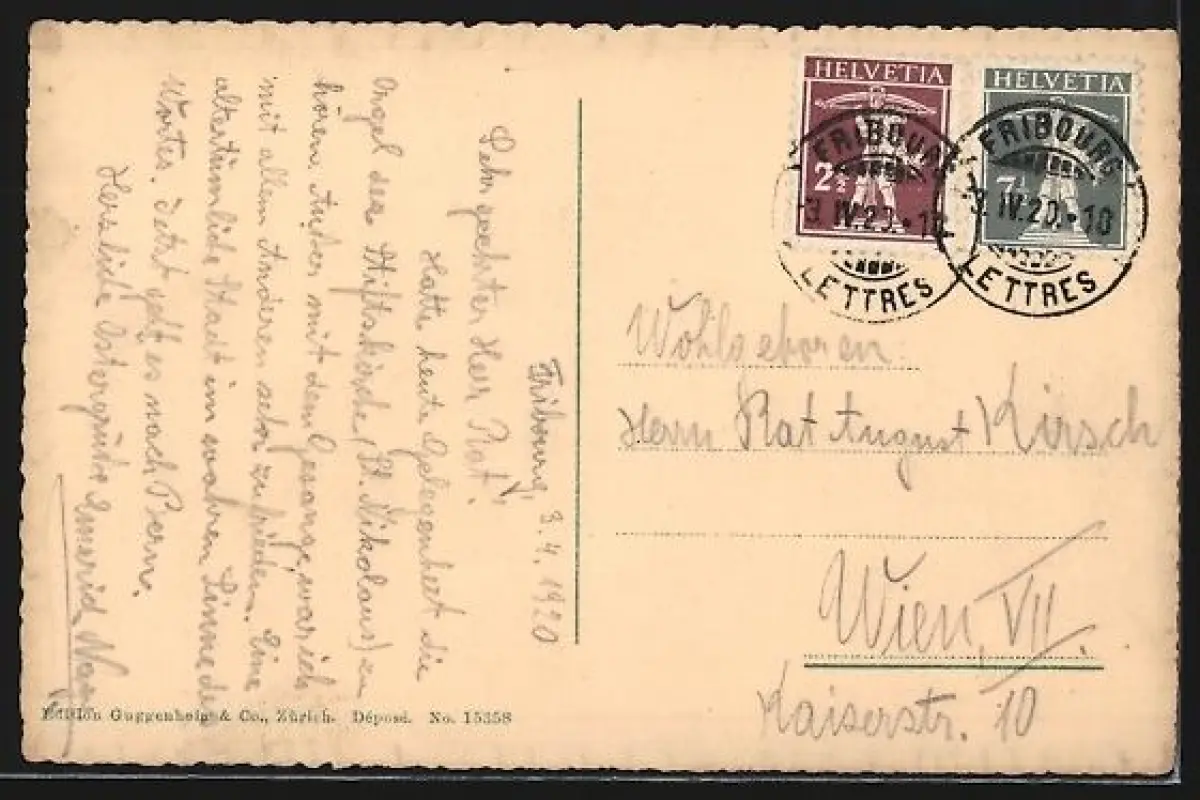 HELVETIA
2½
HELVETIA
7½
FRIBOURG
3. IV. 20. 10
LETTRES
FRIBOURG 1
3. IV. 20. 10
LETTRES
Fribourg, 3. 4. 1920
Sehr geehrter Herr Rat!
Hatte heute Gelegenheit die
Orgel der Stiftskirche (St. Nikolaus) zu
hören. Außer mit dem Gesange, war ich
mit allem Anderen sehr zufrieden. Eine
altertümliche Stadt im wahren Sinne des
Wortes. Jetzt geht es nach Bern.
Herzliche Ostergrüße Emerich
Wohlgeboren
Herrn Rat August Kirsch
Wien, VII.
Kaiserstr. 10
Edition Guggenheim & Co., Zürich. Déposé. No. 15358